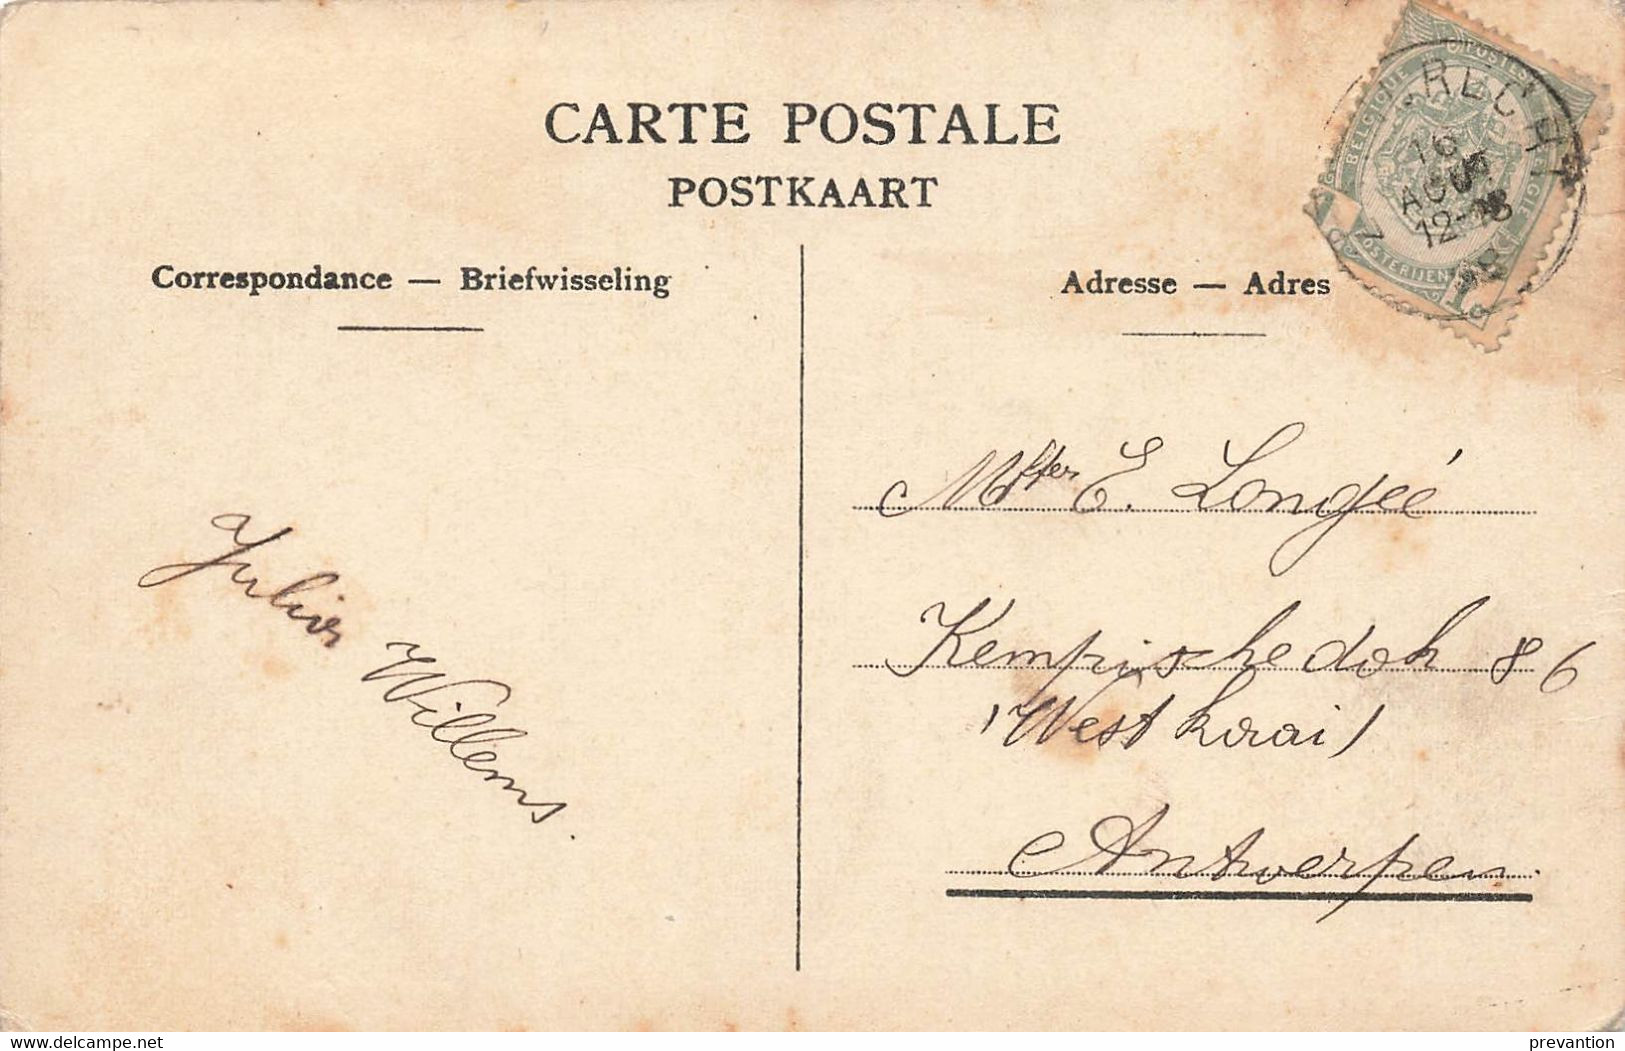 CARTE POSTALE
POSTKAART
Correspondance — Briefwisseling
Adresse — Adres
BELGIQUE POSTES
POSTERIJEN
16
AOUT
12-
Julius
Willems.
E. Longéé
Kempische dok 86
(West kaai)
Antwerpen
www.delcampe.net
prevantion